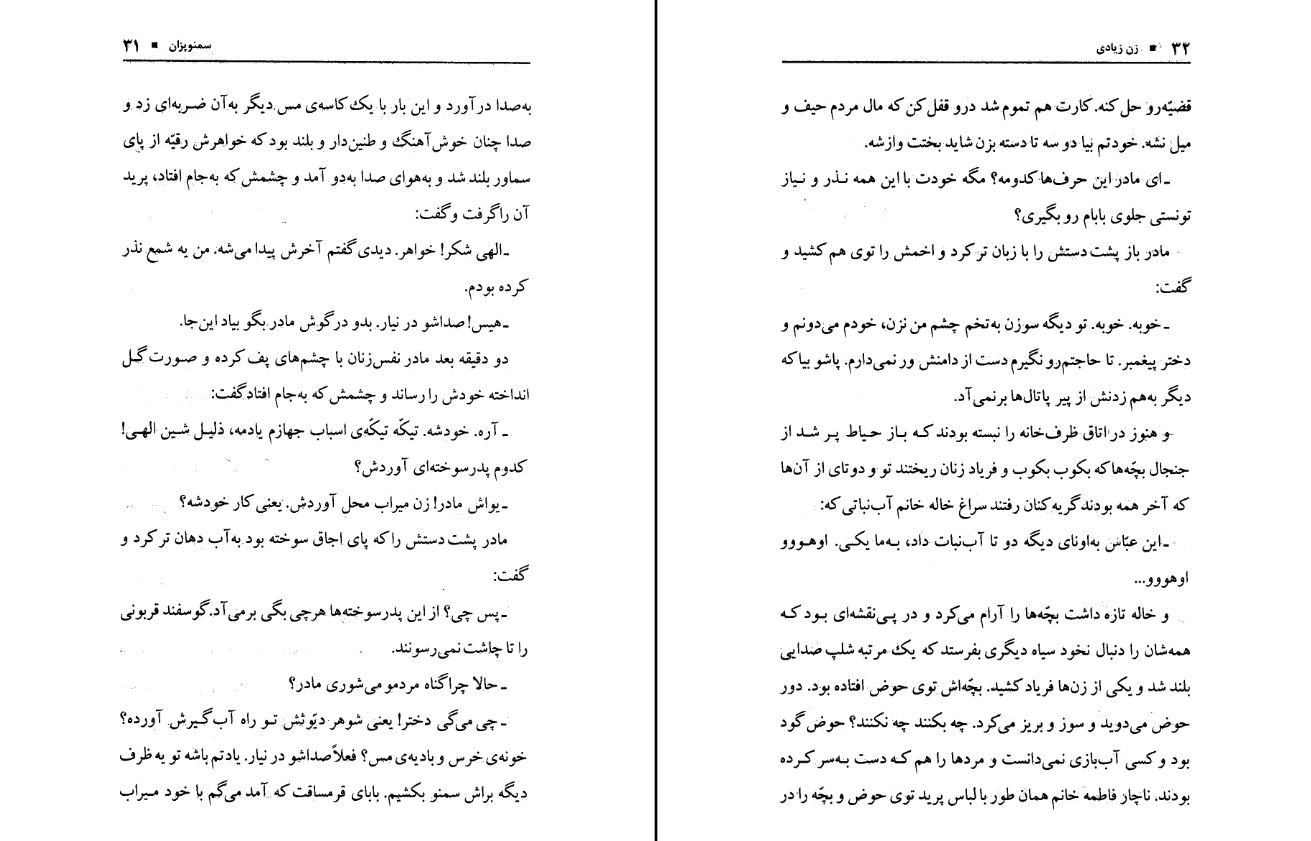 سمنوپزان ■ ۳۱
به‌صدا درآورد و این بار با یک کاسه‌ی مس دیگر به‌آن ضربه‌ای زد و
صدا چنان خوش‌آهنگ و طنین‌دار و بلند بود که خواهرش رقیّه از پای
سماور بلند شد و به‌هوای صدا به‌دو آمد و چشمش که به‌جام افتاد، پرید
آن را گرفت و گفت:
ـ الهی شکر! خواهر. دیدی گفتم آخرش پیدا می‌شه. من یه شمع نذر
کرده بودم.
ـ هیس! صداشو در نیار. بدو در گوش مادر بگو بیاد این‌جا.
دو دقیقه بعد مادر نفس‌زنان با چشم‌های پف کرده و صورت گل
انداخته خودش را رساند و چشمش که به‌جام افتاد گفت:
ـ آره. خودشه. تیکّه تیکّه‌ی اسباب جهازم یادمه، ذلیل شین الهی!
کدوم پدرسوخته‌ای آوردش؟
ـ یواش مادر! زن میراب محل آوردش. یعنی کار خودشه؟
مادر پشت دستش را که پای اجاق سوخته بود به‌آب دهان تر کرد و
گفت:
ـ پس چی؟ از این پدرسوخته‌ها هرچی بگی برمی‌آد. گوسفند قربونی
را تا چاشت نمی‌رسونند.
ـ حالا چرا گناه مردمو می‌شوری مادر؟
ـ چی می‌گی دختر! یعنی شوهر دیّوثش تو راه آب گیرش آورده؟
خونه‌ی خرس و بادیه‌ی مس؟ فعلاً صداشو در نیار. یادتم باشه تو یه ظرف
دیگه براش سمنو بکشیم. بابای قرمساقت که آمد می‌گم با خود میراب
۳۲ ■ زن زیادی
قضیّه‌رو حل کنه. کارت هم تموم شد درو قفل کن که مال مردم حیف و
میل نشه. خودتم بیا دو سه تا دسته بزن شاید بختت وازشه.
ـ ای مادر این حرف‌ها کدومه؟ مگه خودت با این همه نذر و نیاز
تونستی جلوی بابام رو بگیری؟
مادر باز پشت دستش را با زبان تر کرد و اخمش را توی هم کشید و
گفت:
ـ خوبه. خوبه. تو دیگه سوزن به‌تخم چشم من نزن، خودم می‌دونم و
دختر پیغمبر. تا حاجتم‌رو نگیرم دست از دامنش ور نمی‌دارم. پاشو بیا که
دیگر به‌هم زدنش از پیر پاتال‌ها برنمی‌آد.
و هنوز در اتاق ظرف‌خانه را نبسته بودند که باز حیاط پر شد از
جنجال بچّه‌ها که بکوب بکوب و فریاد زنان ریختند تو و دوتای از آن‌ها
که آخر همه بودند گریه‌کنان رفتند سراغ خاله خانم آب‌نباتی که:
ـ این عبّاس به‌اونای دیگه دو تا آب‌نبات داد، به‌ما یکی. اوهووو
اوهووو...
و خاله تازه داشت بچّه‌ها را آرام می‌کرد و در پی‌نقشه‌ای بود که
همه‌شان را دنبال نخود سیاه دیگری بفرستد که یک مرتبه شلپ صدایی
بلند شد و یکی از زن‌ها فریاد کشید. بچّه‌اش توی حوض افتاده بود. دور
حوض می‌دوید و سوز و بریز می‌کرد. چه بکنند چه نکنند؟ حوض گود
بود و کسی آب‌بازی نمی‌دانست و مردها را هم که دست به‌سر کرده
بودند. ناچار فاطمه خانم همان طور با لباس پرید توی حوض و بچّه را در